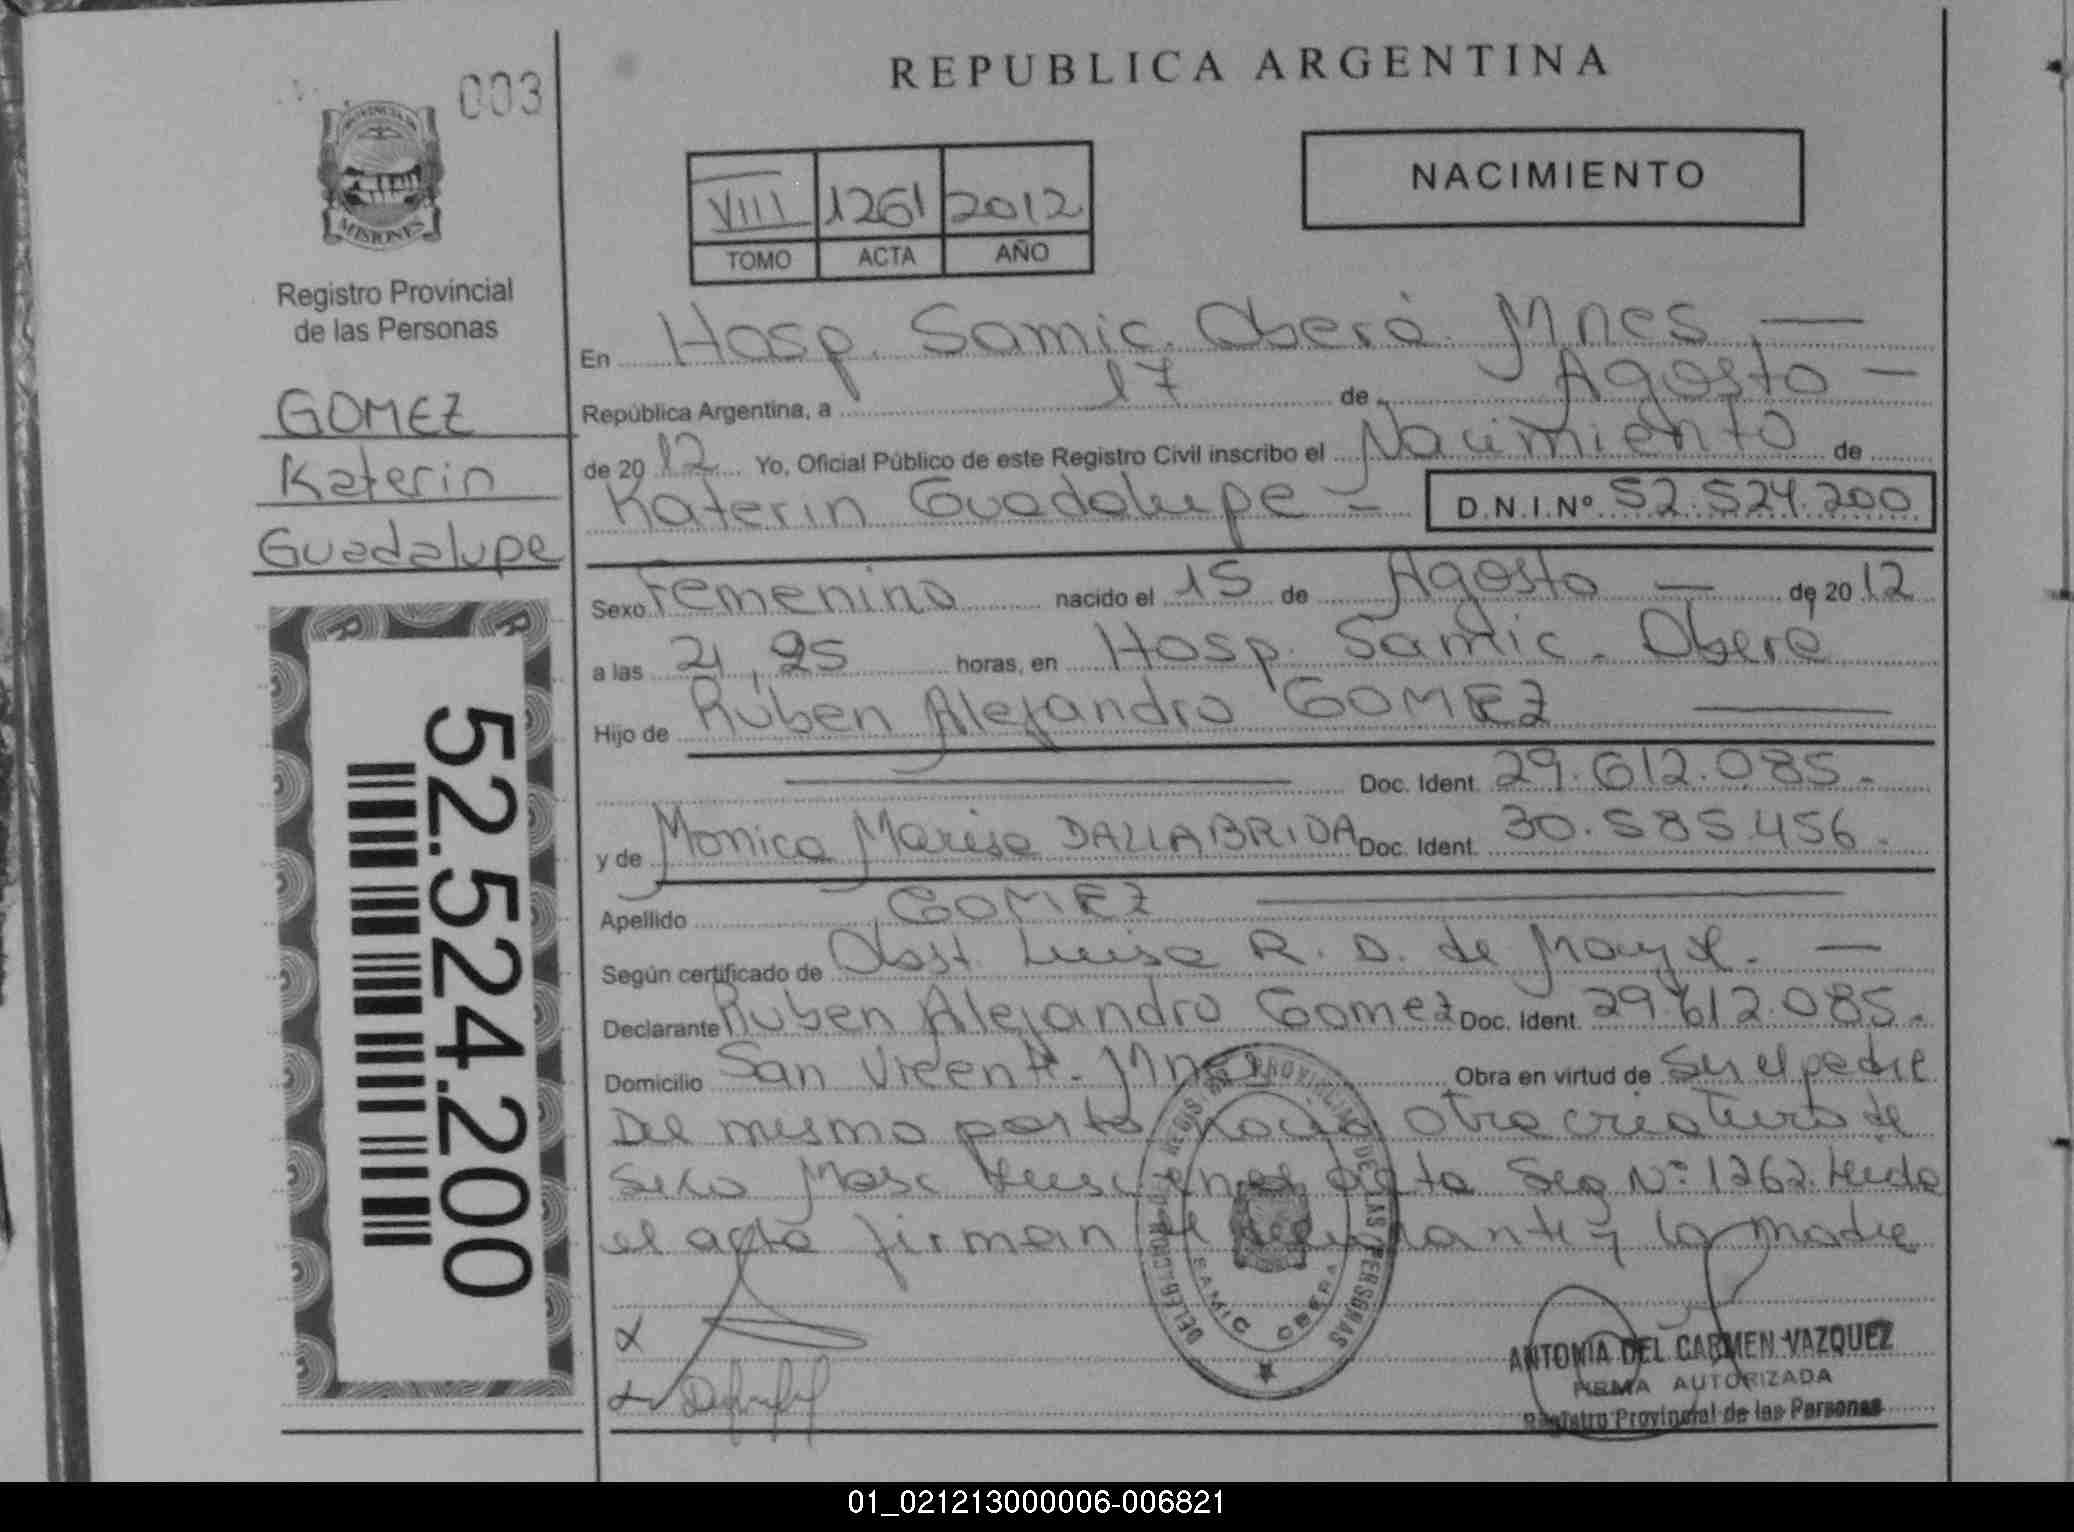 003
PROVINCIA DE
MISIONES
Registro Provincial
de las Personas
GOMEZ
Katerin
Guadalupe
52.524.200
REPUBLICA ARGENTINA
NACIMIENTO
VIII 1261 2012
TOMO ACTA AÑO
En Hosp. Samic. Oberá. Mnes
República Argentina, a 17 de Agosto
de 2012 Yo, Oficial Público de este Registro Civil inscribo el Nacimiento de
Katerin Guadalupe D.N.I.Nº 52.524.200
Sexo Femenino nacido el 15 de Agosto de 2012
a las 21,25 horas, en Hosp. Samic. Oberá
Hijo de Rúben Alejandro GOMEZ
Doc. Ident. 29.612.085.
y de Monica Marisa DALLABRIDA Doc. Ident. 30.585.456.
Apellido GOMEZ
Según certificado de Obst. Luisa R. D. de
Declarante Ruben Alejandro Gomez Doc. Ident. 29.612.085.
Domicilio San Vicente. Mnes Obra en virtud de Ser el padre
Del mismo parto nació otra criatura de
sexo Masc Acta Seg Nº: 1262. Leida
el acta firman el declarante y la madre
DELEGACION REGISTRO PROVINCIAL DE LAS PERSONAS
SAMIC OBERA
ANTONIA DEL CARMEN VAZQUEZ
FIRMA AUTORIZADA
Registro Provincial de las Personas
01_021213000006-006821